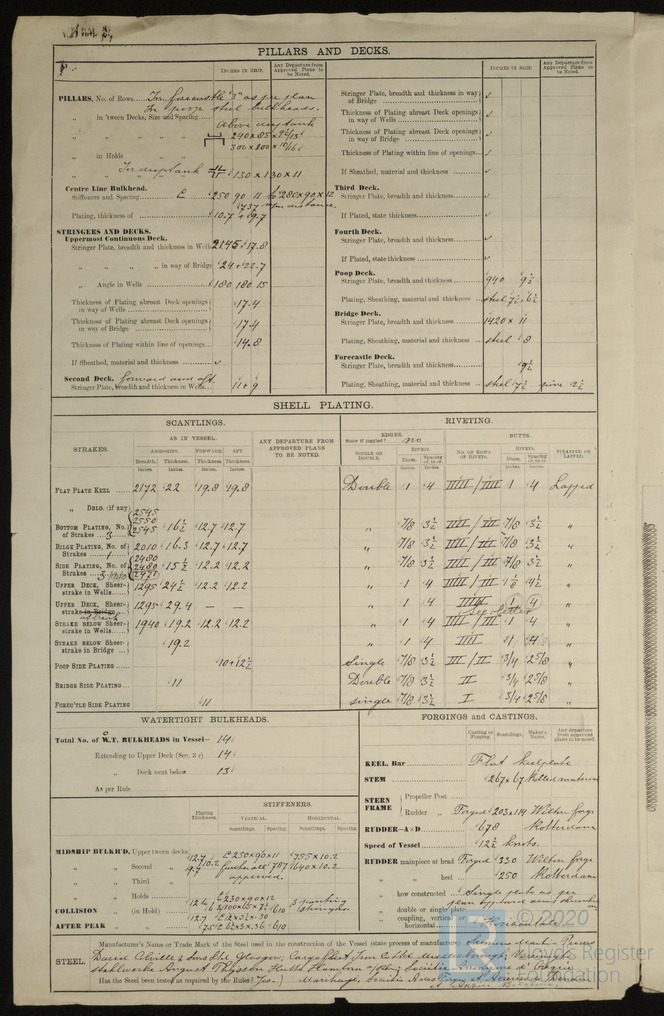 PILLARS AND DECKS.
INCHES IN SHIP.
Any Departure from Approved Plans to be Noted.
PILLARS, No. of Rows In forecastle "3" as per plan
In poop steel bulkheads.
„ in 'tween Decks, Size and Spacing
above deeptank
240 x 85 x
300 x 200 x
„ in Holds
In deeptank 130 x 130 x 11
Centre Line Bulkhead.
Stiffeners and Spacing 250 90 11 to 280 x 90 x 12
737 distance
Plating, thickness of 10.7 + 9.7
STRINGERS AND DECKS.
Uppermost Continuous Deck.
Stringer Plate, breadth and thickness in Wells 2145 17.8
„ „ „ „ in way of Bridge 24 + 22.7
„ Angle in Wells 180 180 15
Thickness of Plating abreast Deck openings in way of Wells 17.4
Thickness of Plating abreast Deck openings in way of Bridge 17.4
Thickness of Plating within line of openings 14.8
If Sheathed, material and thickness
Second Deck. forward and aft
Stringer Plate, breadth and thickness in Wells 11 + 9
INCHES IN SHIP.
Any Departure from Approved Plans to be Noted.
Stringer Plate, breadth and thickness in way of Bridge
Thickness of Plating abreast Deck openings in way of Wells
Thickness of Plating abreast Deck openings in way of Bridge
Thickness of Plating within line of openings
If Sheathed, material and thickness
Third Deck.
Stringer Plate, breadth and thickness
If Plated, state thickness
Fourth Deck.
Stringer Plate, breadth and thickness
If Plated, state thickness
Poop Deck.
Stringer Plate, breadth and thickness 940 9½
Plating, Sheathing, material and thickness steel 7½ + 6½
Bridge Deck.
Stringer Plate, breadth and thickness 1420 x 11
Plating, Sheathing, material and thickness steel 8
Forecastle Deck.
Stringer Plate, breadth and thickness 9½
Plating, Sheathing, material and thickness steel 7½ pine 2½
SHELL PLATING.
SCANTLINGS.
RIVETING.
STRAKES.
AS IN VESSEL.
AMIDSHIPS. FORWARD. AFT.
Breadth. Thickness. Thickness. Thickness.
Inches Inches. Inches. Inches.
ANY DEPARTURE FROM APPROVED PLANS TO BE NOTED.
EDGES.
State if joggled? no
SINGLE OR DOUBLE.
RIVETS.
Diam. Spacing
NO. OF ROWS OF RIVETS.
BUTTS.
RIVETS.
Diam. Spacing
STRAPPED OR LAPPED.
FLAT PLATE KEEL 2172 22 19.8 19.8 Double 1 4 IIII / III 1 4 Lapped
„ DBLG. (if any)
BOTTOM PLATING, No. of Strakes 3 2545 2550 2545 16½ 12.7 12.7 „ 7/8 3½ IIII / III 7/8 3½ „
BILGE PLATING, No. of Strakes 1 2010 16.3 12.7 12.7 „ 7/8 3½ IIII / III 7/8 3½ „
SIDE PLATING, No. of Strakes 3 2480 2480 15½ 12.2 12.2 „ 7/8 3½ IIII / III 7/8 3½ „
UPPER DECK, Sheerstrake in Wells 1295 24½ 12.2 12.2 „ 1 4 IIII / III 1⅛ 4½ „
UPPER DECK, Sheerstrake in Bridge 1295 29.4 – – „ 1 4 1 4 „
See letter
STRAKE BELOW Sheerstrake in Wells 1940 19.2 12.2 12.2 „ 1 4 IIII / III 1 4 „
STRAKE BELOW Sheerstrake in Bridge 19.2 „ 1 4 IIII 1 4 „
POOP SIDE PLATING 10 + 12½ Single 7/8 3½ III / II 3/4 2 5/8 „
BRIDGE SIDE PLATING 11 Double 7/8 3½ II 3/4 2 5/8 „
FOREC'TLE SIDE PLATING 11 Single 7/8 3½ I 3/4 2 5/8 „
WATERTIGHT BULKHEADS.
Total No. of W.T. BULKHEADS in Vessel– 14
Extending to Upper Deck (Sec. 3 c) 14
„ Deck next below 13
As per Rule
STIFFENERS.
Plating Thickness.
VERTICAL. HORIZONTAL.
Scantlings. Spacing Scantlings. Spacing
MIDSHIP BULKH'D, Upper tween decks 250 x 90 x 11 755 x 10.2
„ „ Second „ 787 640 x 10.2
„ „ Third „ approved.
„ „ Holds 230 x 90 x 12
COLLISION „ (in Hold) 610 3 panting stringers.
AFTER PEAK „ 610
FORGINGS and CASTINGS.
Casting or Forging. Scantlings. Maker's Name. Any departure from approved plans to be noted.
KEEL, Bar Flat keelplate
STEM 267 x 67 Rolled material
STERN FRAME
Propeller Post
Rudder „ Forged 203 x 114 Wilton forge
RUDDER–A x D 678 Rotterdam
Speed of Vessel 12½ knots.
RUDDER mainpiece at head Forged 330 Wilton forge
„ „ heel 250 Rotterdam
„ how constructed Single plate as per
„ double or single plate plan approved
„ coupling, vertical or horizontal Horizontal.
STEEL.
Manufacturer's Name or Trade Mark of the Steel used in the construction of the Vessel (state process of manufacture) Siemens Mart. Process
David Colville & Sons Ltd Glasgow, Cargo Fleet Iron Co Ltd Middlesborough, Vereinigte
Stahlwerke August Thyssen Hütte Hamborn Société Anonyme d'Ougrée
Has the Steel been tested as required by the Rules? Yes. Marihaye, Société
© 2020
Lloyd's Register
Foundation